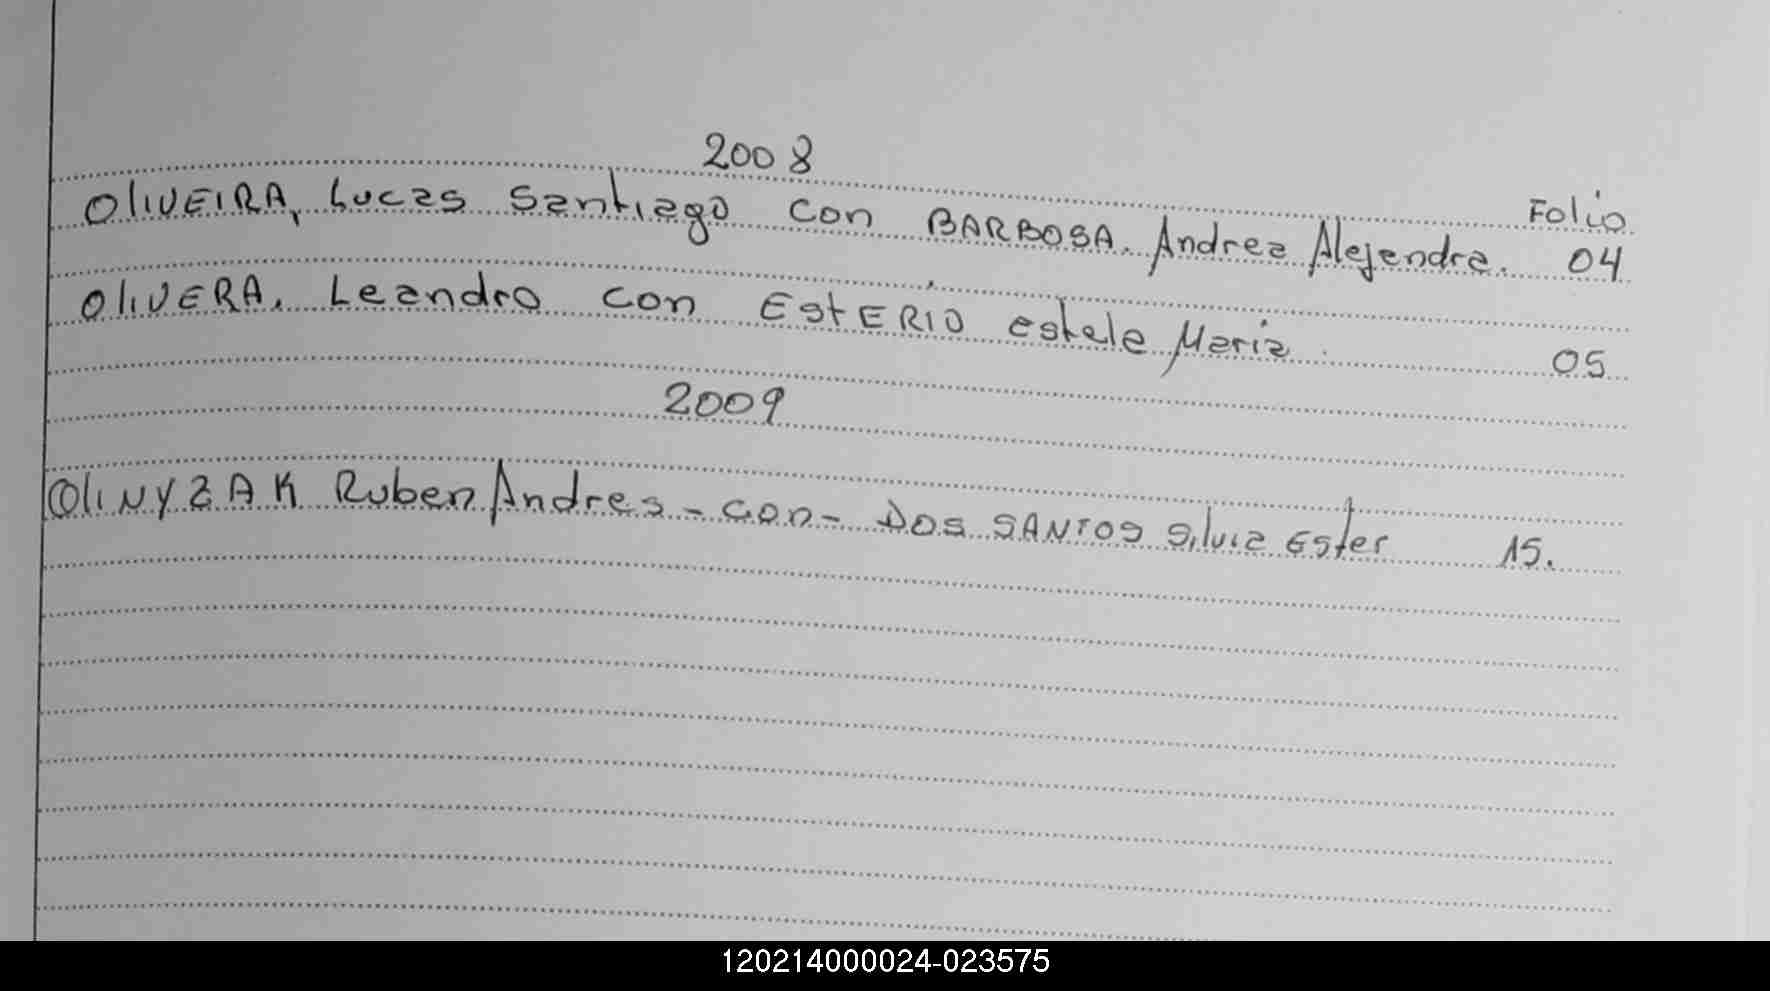 2008
Folio
OLIVEIRA, Lucas Santiago con BARBOSA. Andrea Alejandra. 04
OLIVERA. Leandro con EstERIO estela Maria. 05
2009
OLINYZAK Ruben Andres - con - DOS SANTOS Silvia Ester 15.
120214000024-023575